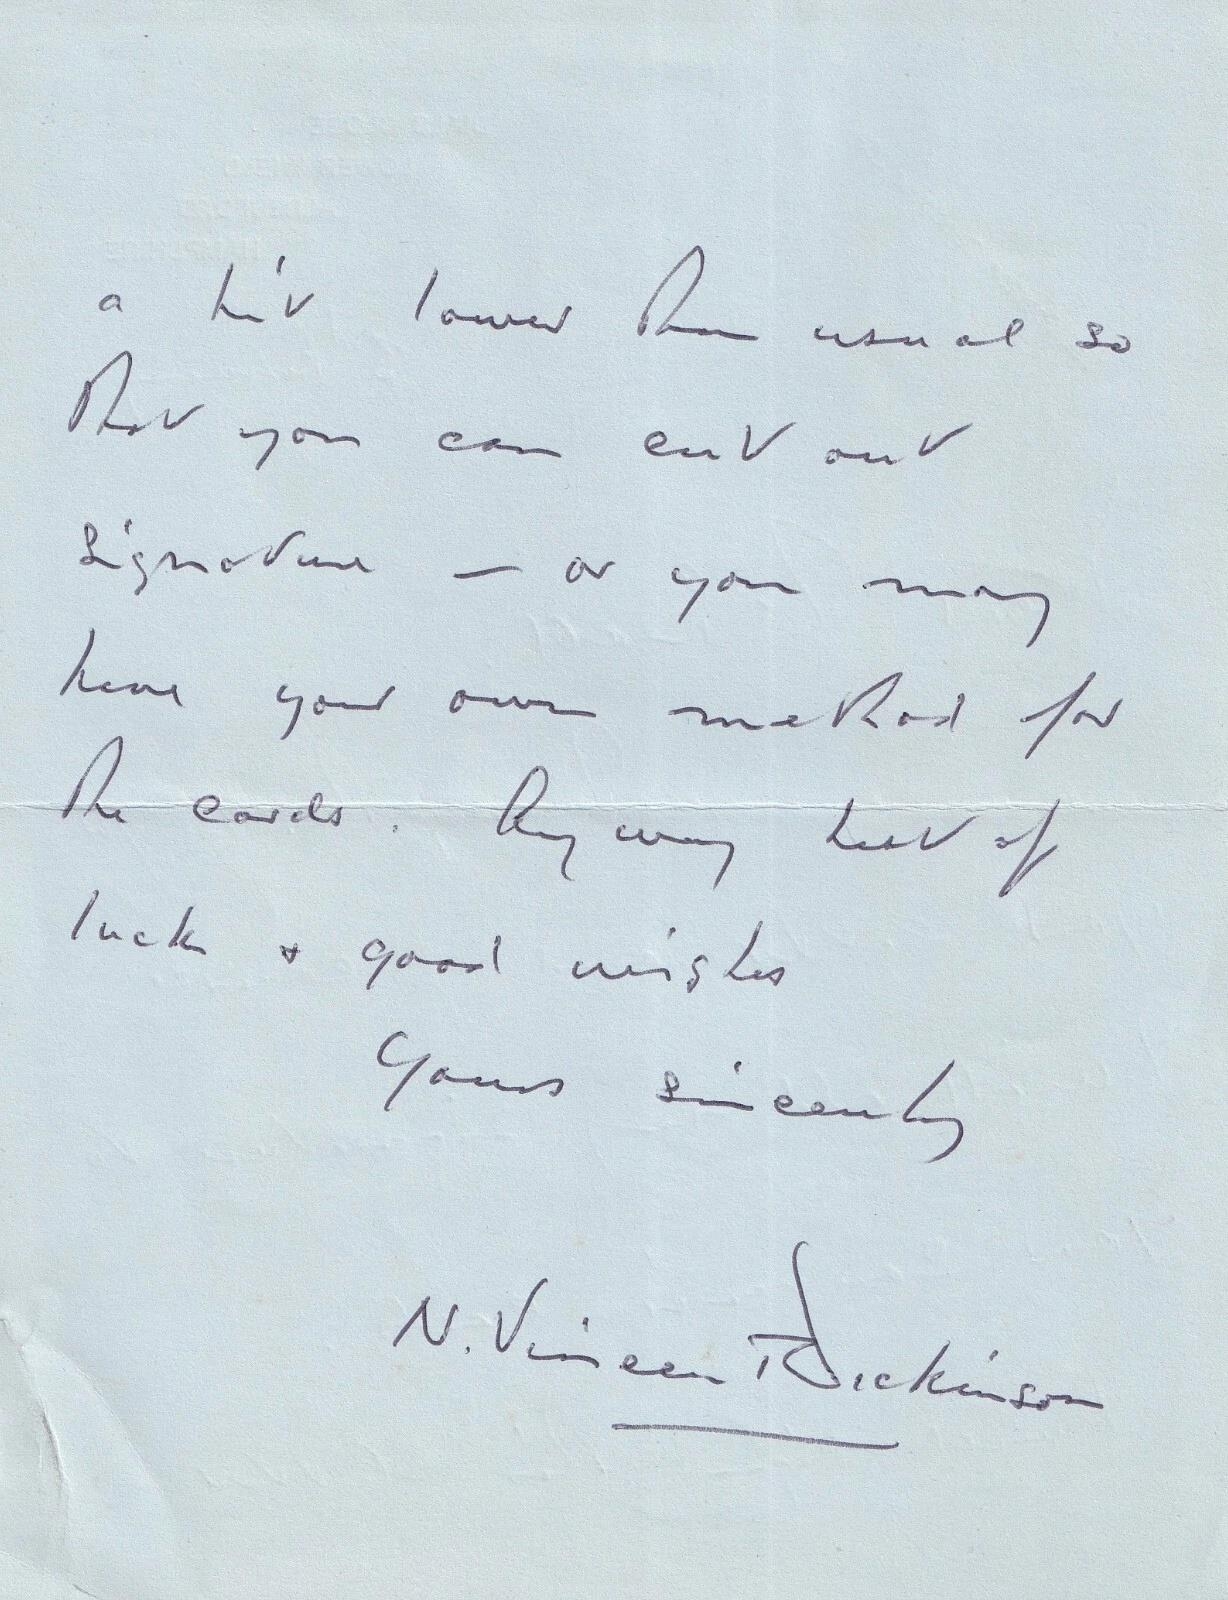 a bit lower than usual so
that you can cut out
signature — or you may
have your own method for
the cards. Anyway best of
luck & good wishes
Yours sincerely
N. Vincent Dickinson